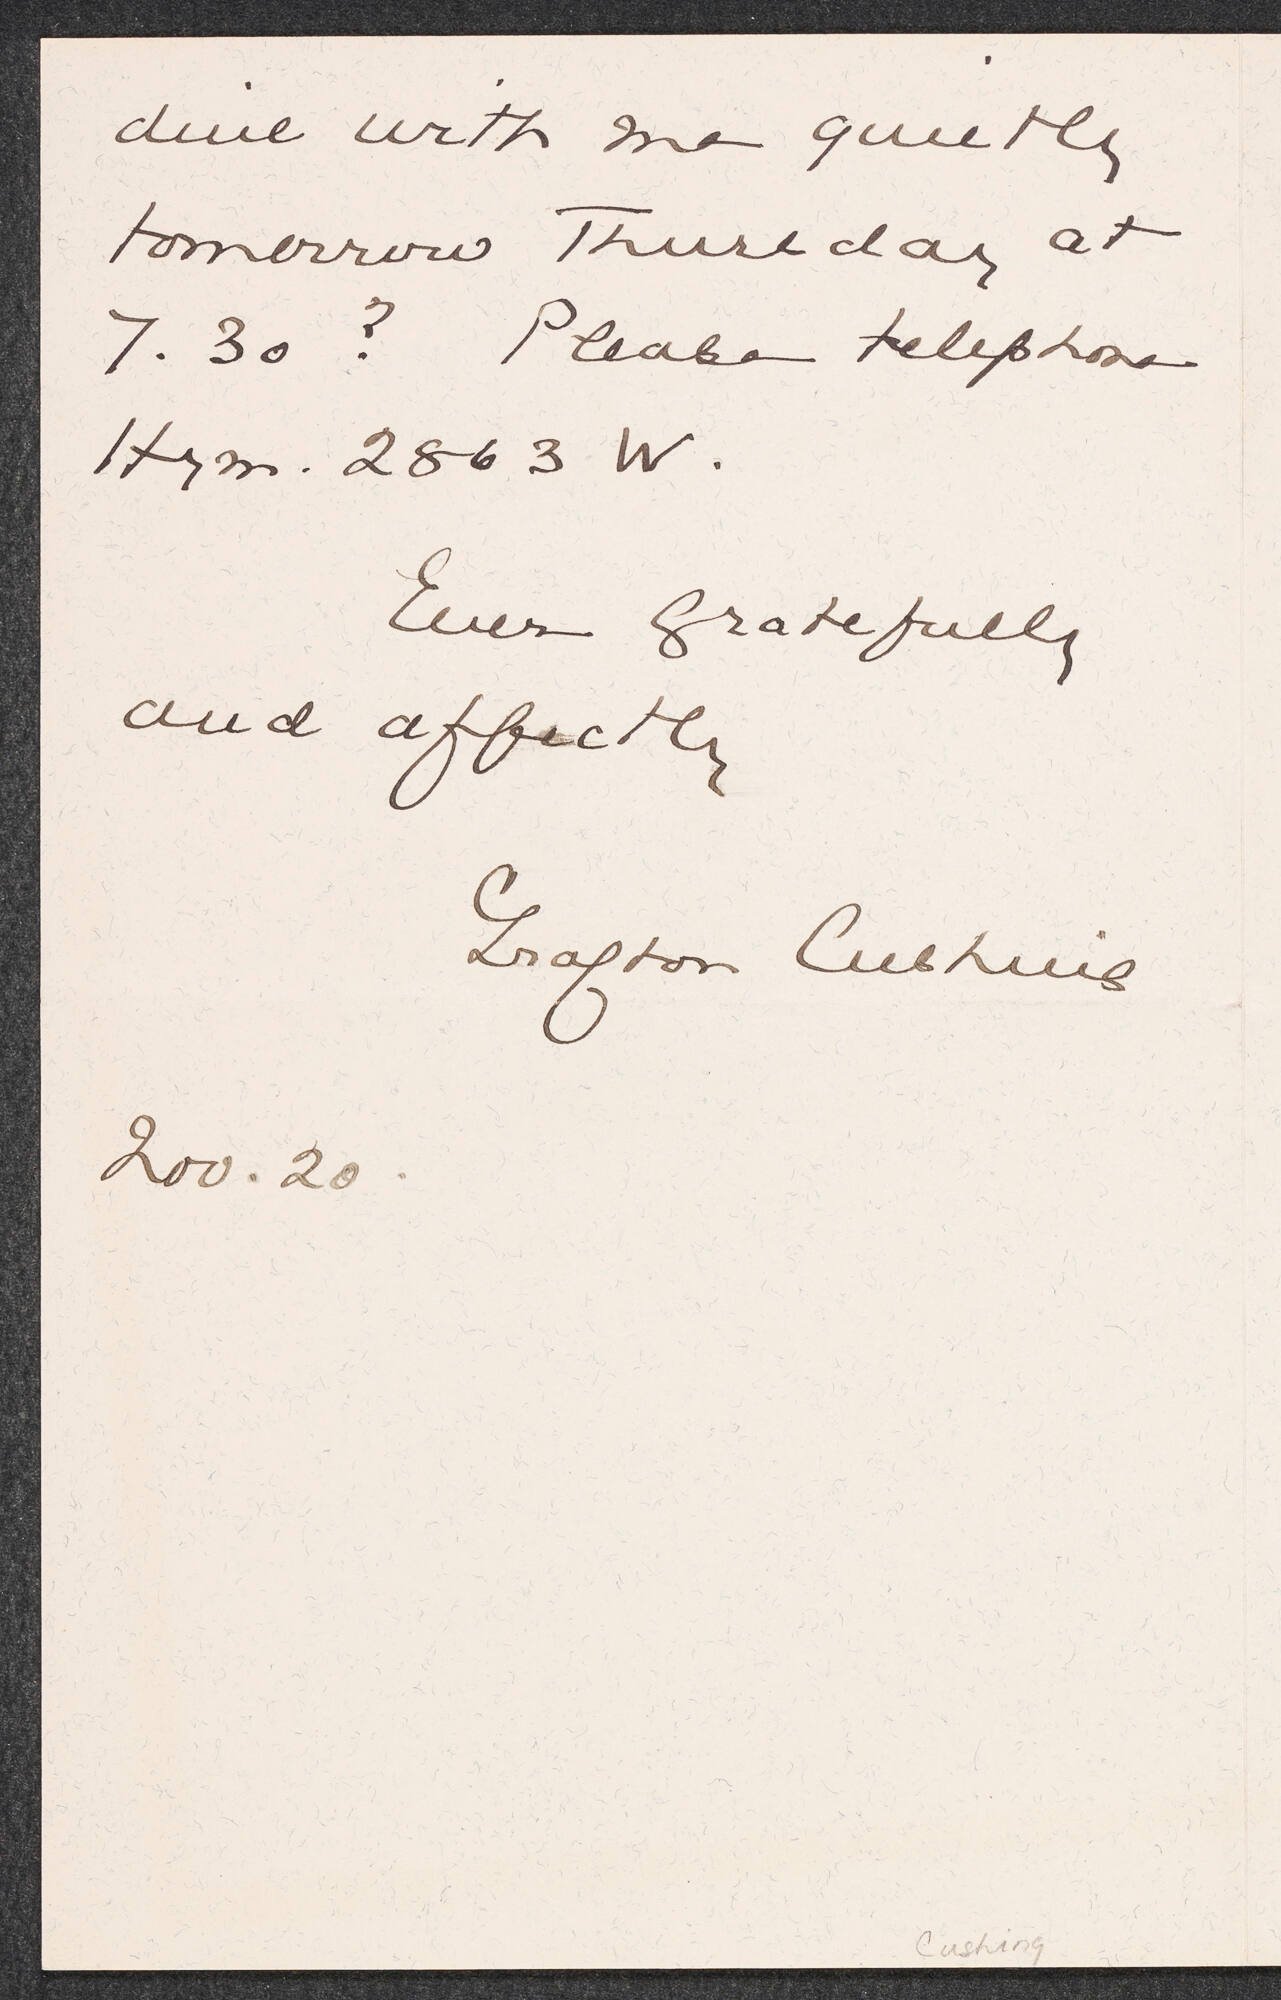 dine with me quietly
tomorrow Thursday at
7.30? Please telephone
Hym. 2863 W.
Ever gratefully
and affectly
Grafton Cushing
Nov. 20.
Cushing